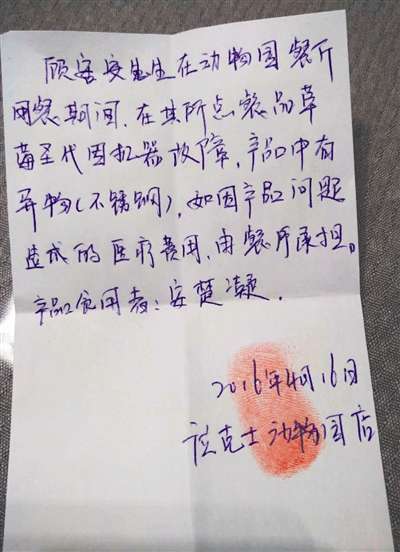 顾客安先生在动物园餐厅
用餐期间，在其所点餐品草
莓圣代因机器故障，产品中有
异物（不锈钢），如因产品问题
造成的医疗费用，由餐厅承担。
产品食用者：安楚凝．
2016年4月16日
德克士动物园店